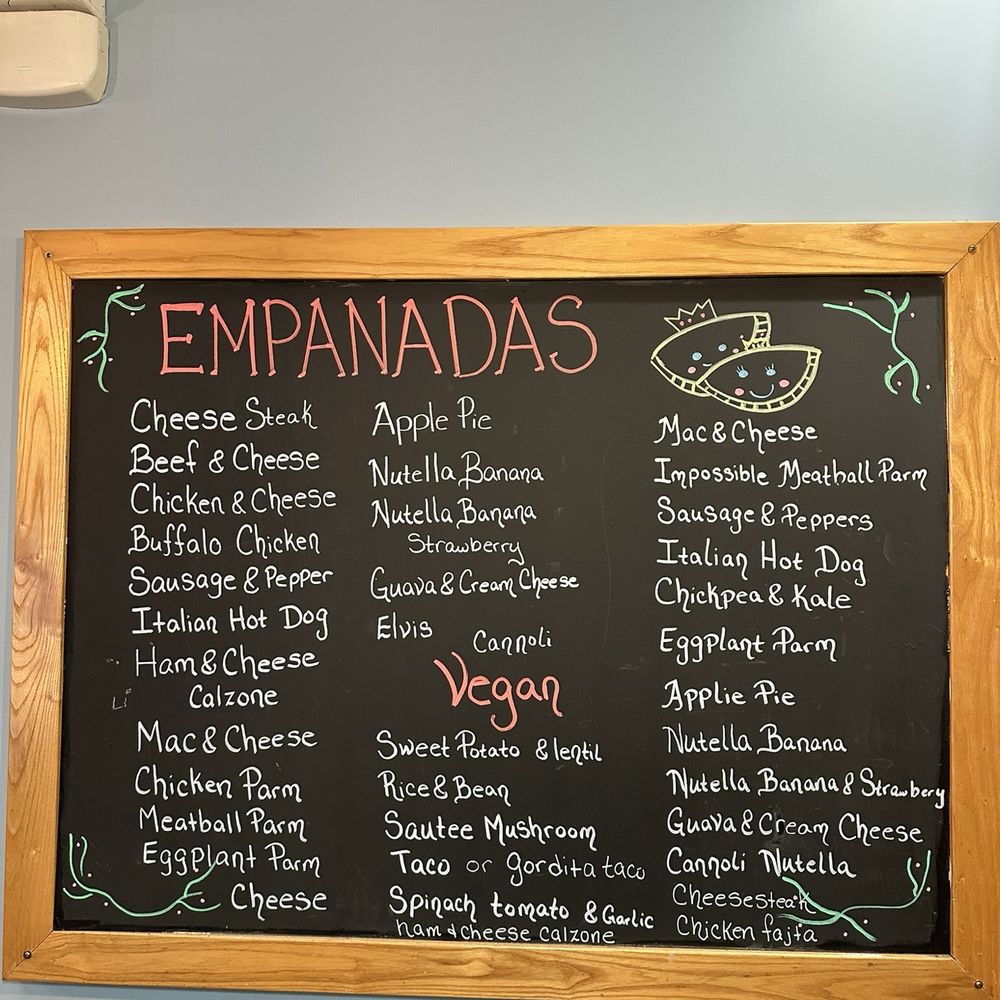 EMPANADAS
Cheese Steak
Beef & Cheese
Chicken & Cheese
Buffalo Chicken
Sausage & Pepper
Italian Hot Dog
Ham & Cheese
Calzone
Mac & Cheese
Chicken Parm
Meatball Parm
Eggplant Parm
Cheese
Apple Pie
Nutella Banana
Nutella Banana
Strawberry
Guava & Cream Cheese
Elvis
Cannoli
Vegan
Sweet Potato & lentil
Rice & Bean
Sautee Mushroom
Taco or gordita taco
Spinach tomato & Garlic
ham & cheese calzone
Mac & Cheese
Impossible Meatball Parm
Sausage & Peppers
Italian Hot Dog
Chickpea & Kale
Eggplant Parm
Applie Pie
Nutella Banana
Nutella Banana & Strawbery
Guava & Cream Cheese
Cannoli Nutella
Cheesesteak
Chicken fajta